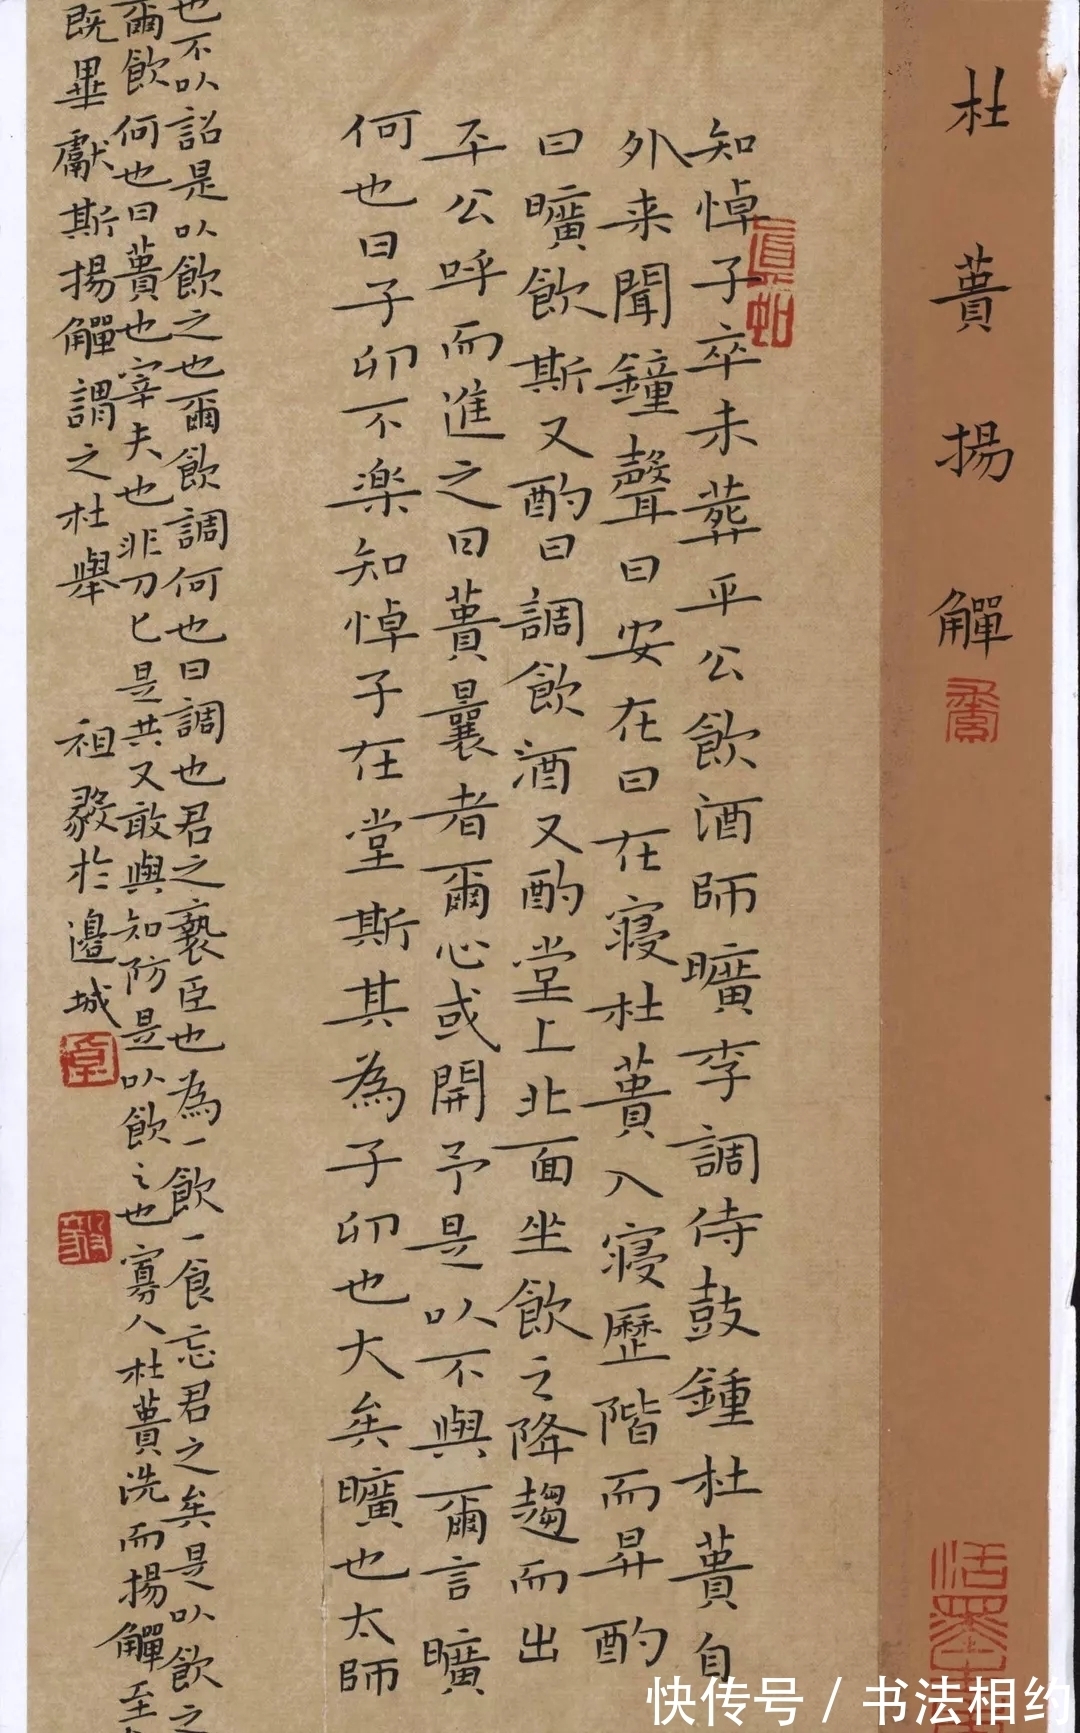 杜蕢揚觶
知悼子卒未葬平公飲酒師曠李調侍鼓鍾杜蕢自
外来聞鐘聲曰安在曰在寝杜蕢入寝歷階而昇酌
曰曠飲斯又酌曰調飲酒又酌堂上北面坐飲之降趨而出
平公呼而進之曰蕢曩者爾心或開予是以不與爾言曠
何也曰子卯不楽知悼子在堂斯其為子卯也大矣曠也太師
也不以詔是以飲之也爾飲調何也曰調也君之褻臣也為一飲一食忘君之矣是以飲之
爾飲何也曰蕢也宰夫也非刀匕是共又敢與知防是以飲之也寡人杜蕢洗而揚觶至
既畢獻斯揚觶謂之杜舉 祖毅於邉城
快传号 / 书法相约